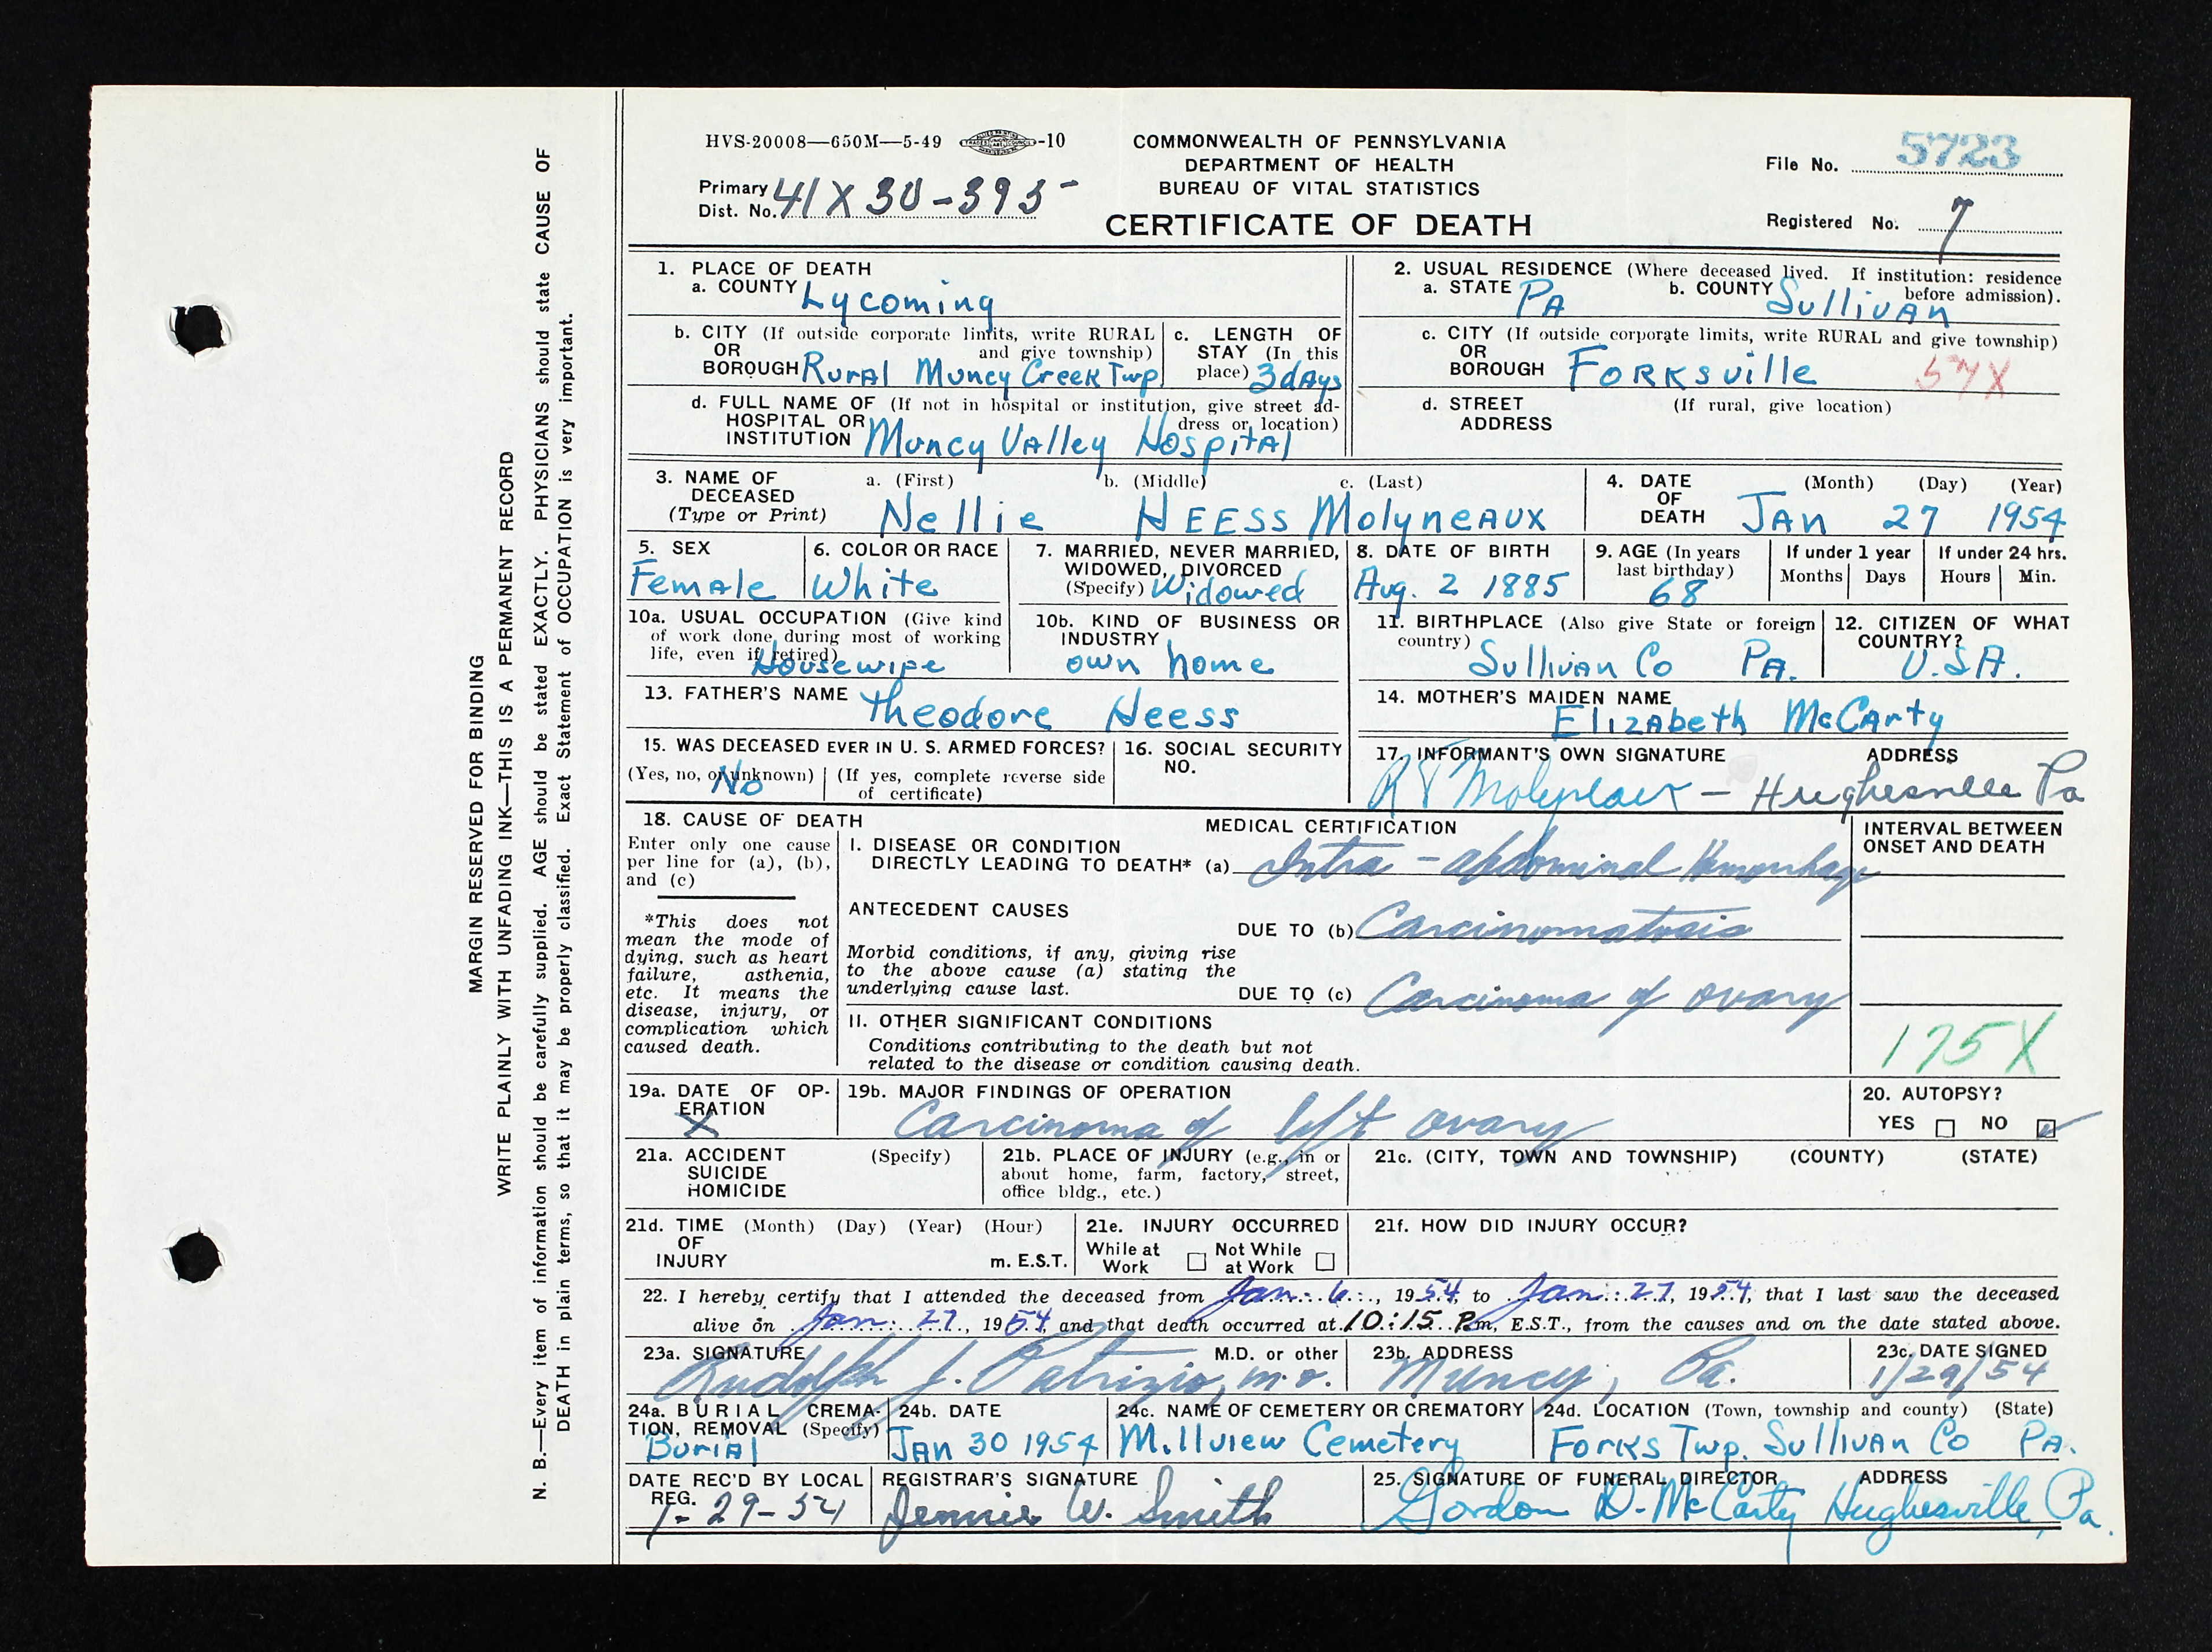 HVS-20008—650M—5-49 -10
COMMONWEALTH OF PENNSYLVANIA
DEPARTMENT OF HEALTH
BUREAU OF VITAL STATISTICS
CERTIFICATE OF DEATH
File No. 5723
Primary
Dist. No. 41X30-395
Registered No. 7
MARGIN RESERVED FOR BINDING
WRITE PLAINLY WITH UNFADING INK—THIS IS A PERMANENT RECORD
N. B.—Every item of information should be carefully supplied. AGE should be stated EXACTLY. PHYSICIANS should state CAUSE OF
DEATH in plain terms, so that it may be properly classified. Exact Statement of OCCUPATION is very important.
1. PLACE OF DEATH
a. COUNTY Lycoming
b. CITY (If outside corporate limits, write RURAL
OR and give township)
BOROUGH Rural Muncy Creek Twp
c. LENGTH OF
STAY (In this
place) 3 days
d. FULL NAME OF (If not in hospital or institution, give street ad-
HOSPITAL OR dress or location)
INSTITUTION Muncy Valley Hospital
2. USUAL RESIDENCE (Where deceased lived. If institution: residence
before admission).
a. STATE PA b. COUNTY Sullivan
c. CITY (If outside corporate limits, write RURAL and give township)
OR
BOROUGH Forksville 57X
d. STREET (If rural, give location)
ADDRESS
3. NAME OF
DECEASED
(Type or Print)
a. (First) b. (Middle) c. (Last)
Nellie HEESS Molyneaux
4. DATE
OF
DEATH
(Month) (Day) (Year)
JAN 27 1954
5. SEX
Female
6. COLOR OR RACE
White
7. MARRIED, NEVER MARRIED,
WIDOWED, DIVORCED
(Specify) Widowed
8. DATE OF BIRTH
Aug. 2 1885
9. AGE (In years
last birthday)
68
If under 1 year
Months Days
If under 24 hrs.
Hours Min.
10a. USUAL OCCUPATION (Give kind
of work done during most of working
life, even if retired)
Housewife
10b. KIND OF BUSINESS OR
INDUSTRY
own home
11. BIRTHPLACE (Also give State or foreign
country)
Sullivan Co PA.
12. CITIZEN OF WHAT
COUNTRY?
U.S.A.
13. FATHER'S NAME Theodore Heess
14. MOTHER'S MAIDEN NAME
Elizabeth McCarty
15. WAS DECEASED EVER IN U. S. ARMED FORCES?
(Yes, no, or unknown) (If yes, complete reverse side
of certificate)
No
16. SOCIAL SECURITY
NO.
17. INFORMANT'S OWN SIGNATURE ADDRESS
R T Molyneaux — Hughesville Pa
18. CAUSE OF DEATH
Enter only one cause
per line for (a), (b),
and (c)
*This does not
mean the mode of
dying, such as heart
failure, asthenia,
etc. It means the
disease, injury, or
complication which
caused death.
MEDICAL CERTIFICATION
I. DISEASE OR CONDITION
DIRECTLY LEADING TO DEATH* (a) Intra-abdominal Hemorrhage
ANTECEDENT CAUSES
DUE TO (b) Carcinomatosis
Morbid conditions, if any, giving rise
to the above cause (a) stating the
underlying cause last.
DUE TO (c) Carcinoma of ovary
II. OTHER SIGNIFICANT CONDITIONS
Conditions contributing to the death but not
related to the disease or condition causing death.
INTERVAL BETWEEN
ONSET AND DEATH
175X
19a. DATE OF OP-
ERATION
X
19b. MAJOR FINDINGS OF OPERATION
Carcinoma of left ovary
20. AUTOPSY?
YES NO
21a. ACCIDENT (Specify)
SUICIDE
HOMICIDE
21b. PLACE OF INJURY (e.g., in or
about home, farm, factory, street,
office bldg., etc.)
21c. (CITY, TOWN AND TOWNSHIP) (COUNTY) (STATE)
21d. TIME (Month) (Day) (Year) (Hour)
OF
INJURY m. E.S.T.
21e. INJURY OCCURRED
While at Not While
Work at Work
21f. HOW DID INJURY OCCUR?
22. I hereby certify that I attended the deceased from Jan. 6, 1954, to Jan. 27, 1954, that I last saw the deceased
alive on Jan. 27, 1954, and that death occurred at 10:15 P.m, E.S.T., from the causes and on the date stated above.
23a. SIGNATURE M.D. or other
Rudolph J. Patrizio, M.D.
23b. ADDRESS
Muncy, Pa.
23c. DATE SIGNED
1/29/54
24a. BURIAL CREMA-
TION, REMOVAL (Specify)
Burial
24b. DATE
JAN 30 1954
24c. NAME OF CEMETERY OR CREMATORY
Millview Cemetery
24d. LOCATION (Town, township and county) (State)
Forks Twp. Sullivan Co PA.
DATE REC'D BY LOCAL
REG.
1-29-54
REGISTRAR'S SIGNATURE
Jennie W. Smith
25. SIGNATURE OF FUNERAL DIRECTOR ADDRESS
Gordon D. McCarty Hughesville, Pa.